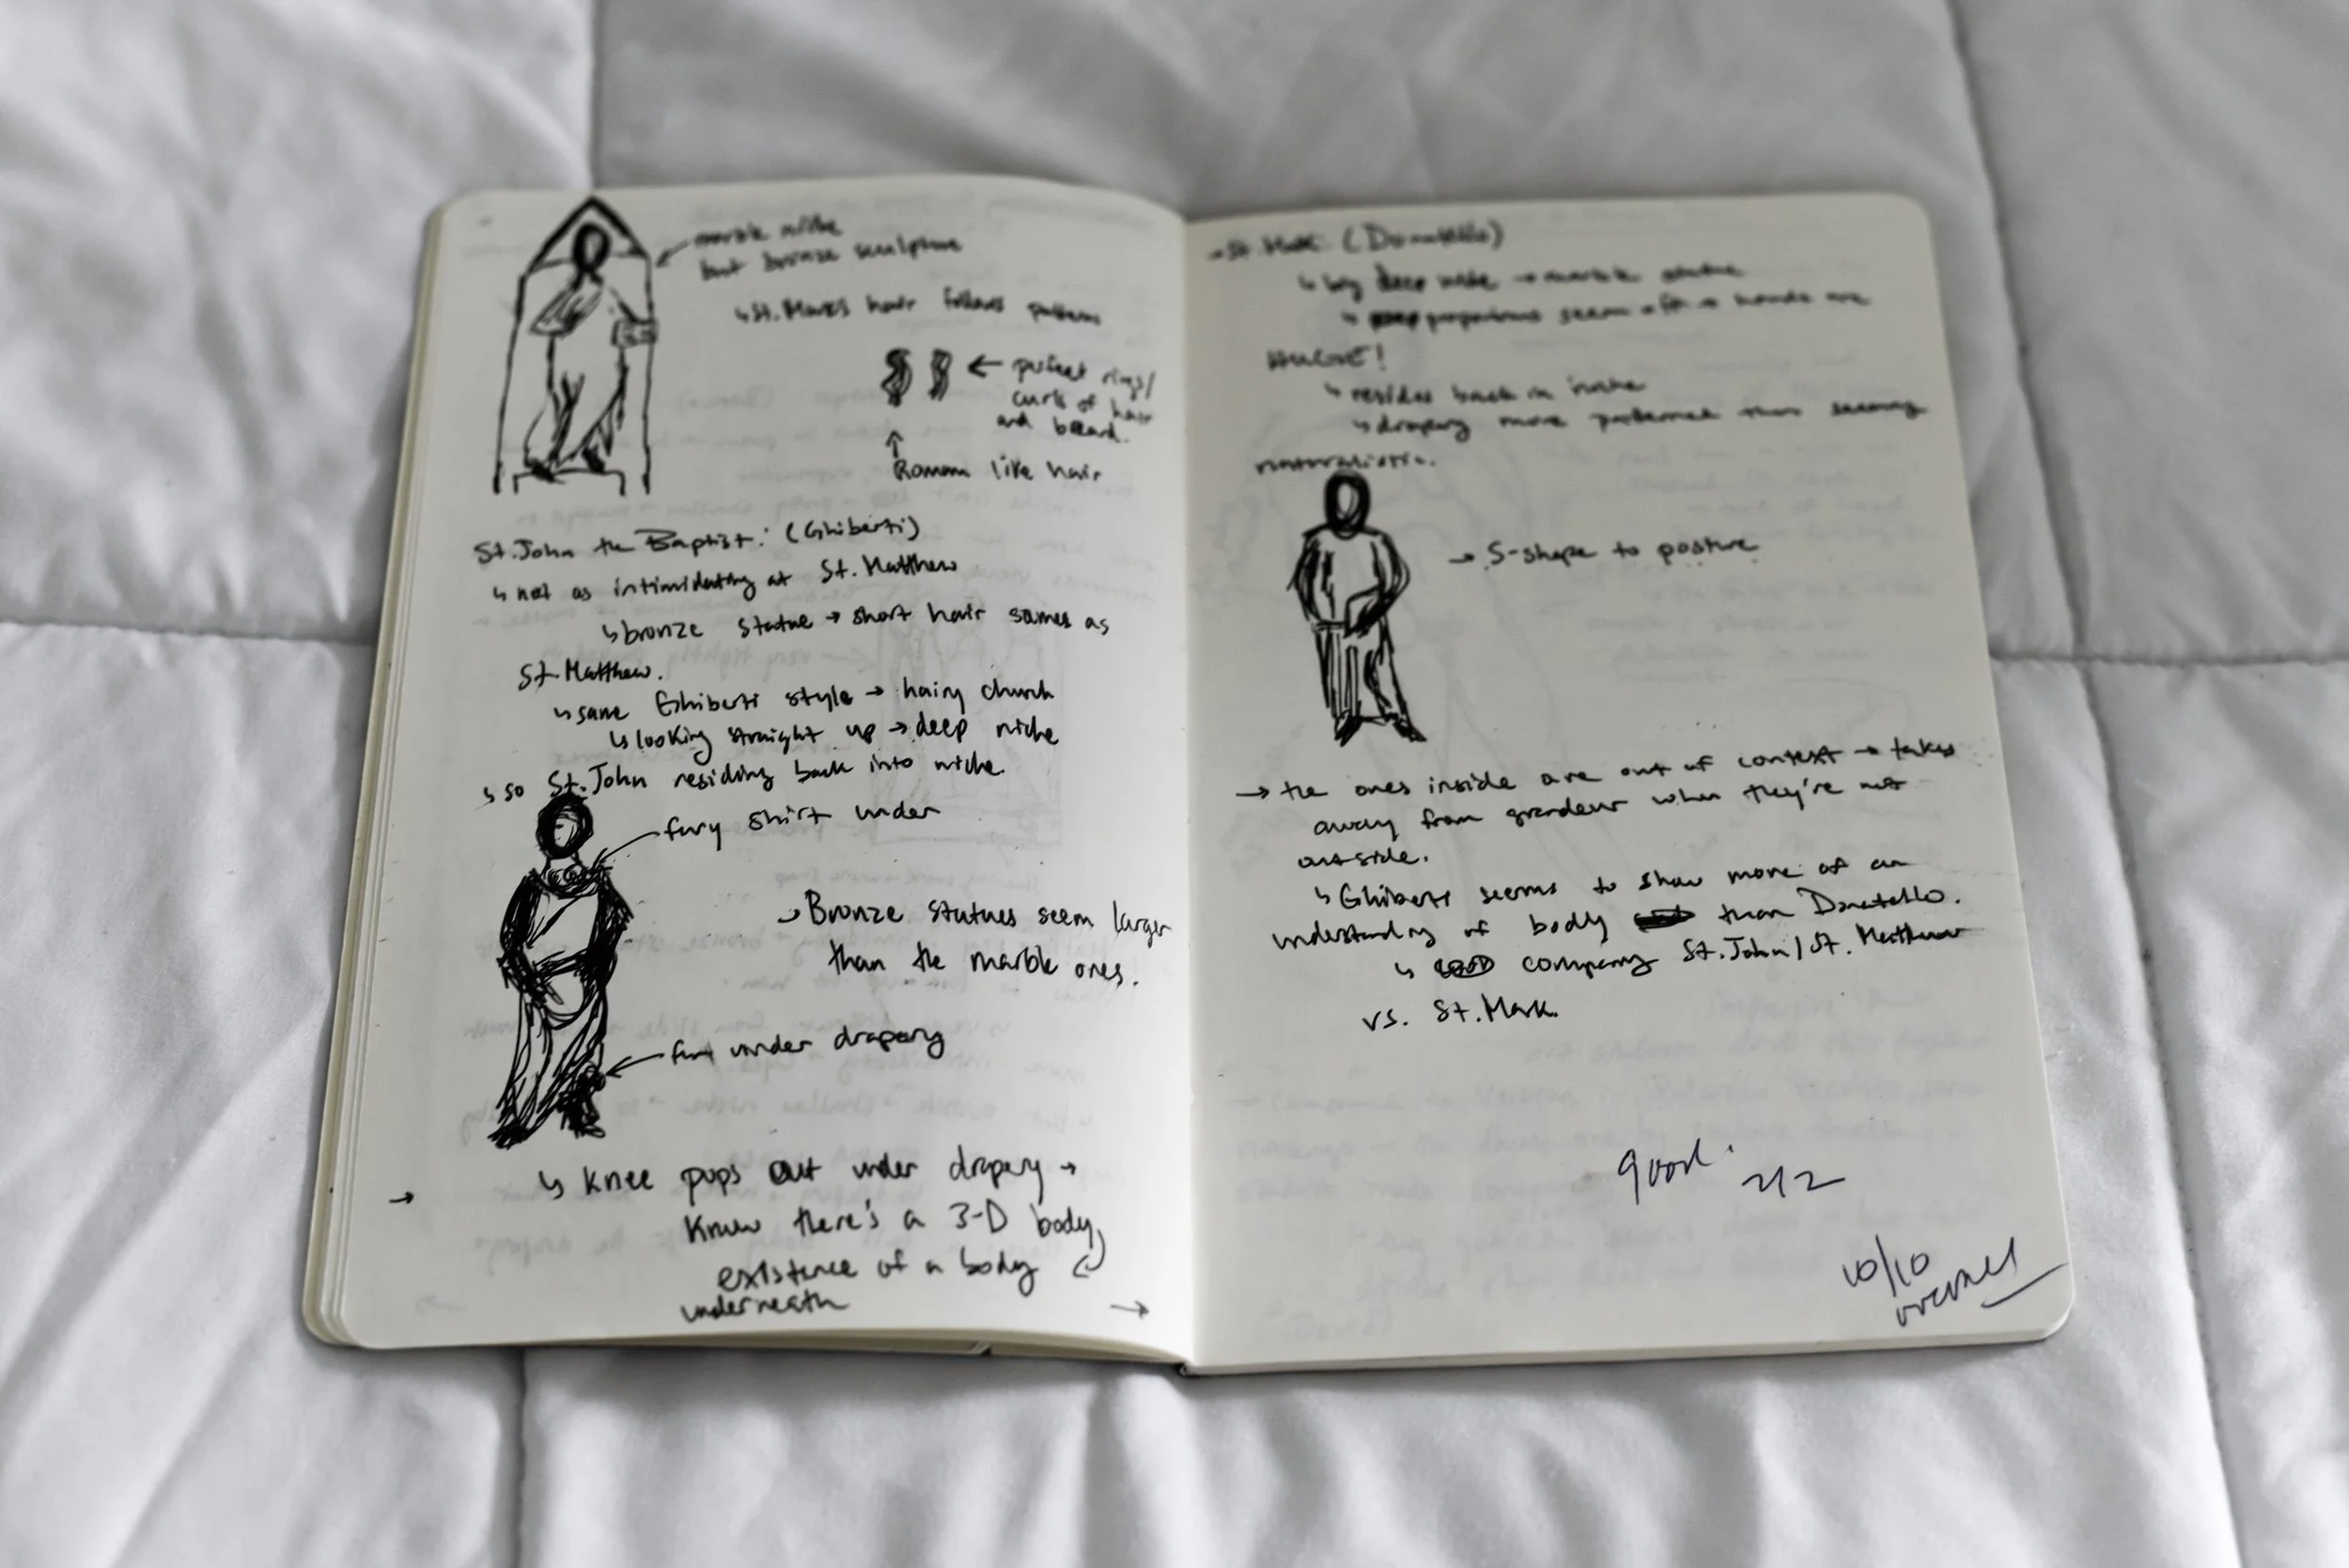 marble niche
but bronze sculpture
↳ St. Mark's hair follows pattern
← perfect rings/
curls of hair
and beard.
↑
Roman like hair
St. John the Baptist: (Ghiberti)
↳ not as intimidating at St. Matthew
↳ bronze statue → short hair sames as
St. Matthew.
↳ same Ghiberti style → hairy church
↳ looking straight up → deep niche
↳ so St. John residing back into niche.
fury shirt under
→ Bronze statues seem larger
than the marble ones.
fur under drapery
→ ↳ knee pops out under drapery →
know there's a 3-D body,
existence of a body
underneath
→
→ St. Mark: (Donatello)
↳ big deep niche → marble statue
↳ proportions seem off → hands are
HUGE!
↳ resides back in niche
↳ drapery more patterned than seeming
naturalistic.
→ S-shape to posture
→ the ones inside are out of context → takes
away from grandeur when they're not
outside.
↳ Ghiberti seems to show more of an
understanding of body than Donatello.
↳ company St. John/St. Matthew
vs. St. Mark.
good.
2/2
10/10